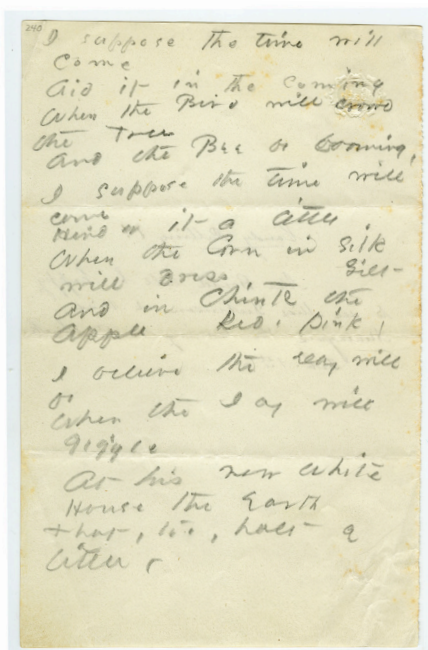 240
I suppose the time will
come
Aid it in the coming
When the Bird will crowd
the Tree
And the Bee be booming,
I suppose the time will
come
Hinder it a little
When the Corn in Silk
will dress Gilt-
And in Chintz the
Apple Red, Pink,
I believe the Day will
be
When the Jay will
giggle
At his new white
House the Earth
That, too, halt a
little -